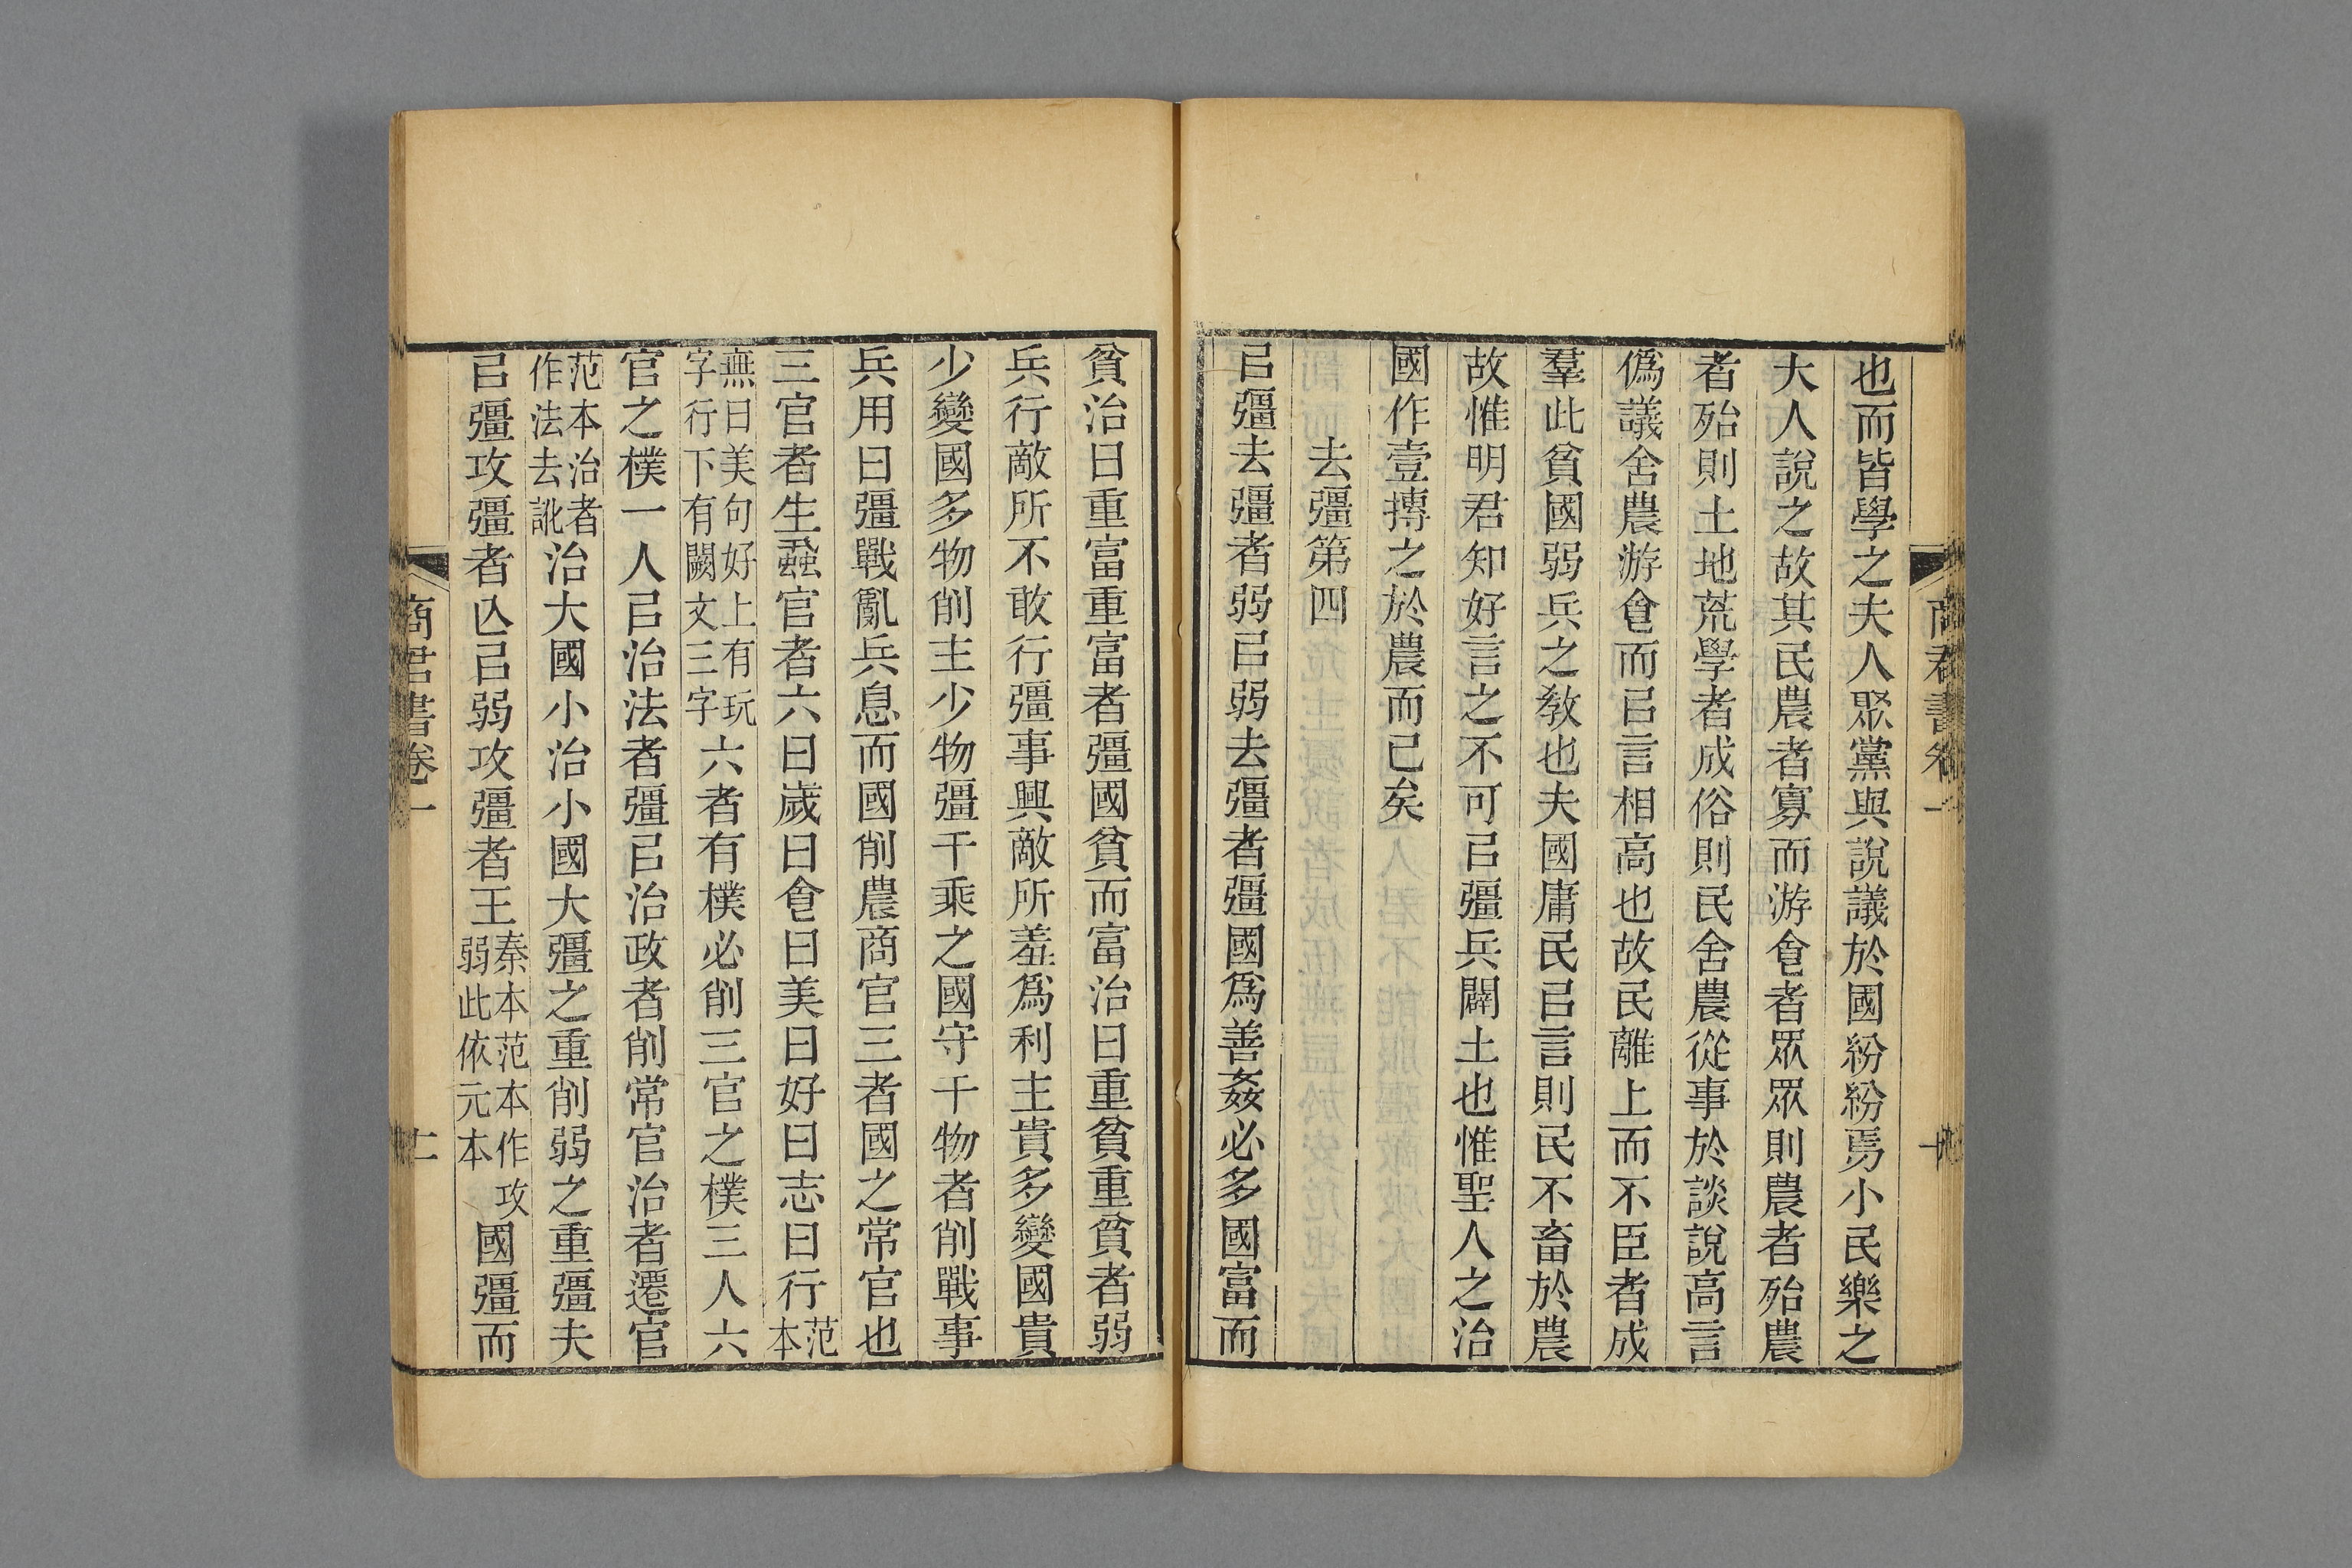 也而皆學之夫人聚黨與說議於國紛紛焉小民樂之
大人說之故其民農者寡而游𠊊者眾眾則農者殆農
者殆則土地荒學者成俗則民舍農從事於談說高言
僞議舍農游𠊊而㠯言相高也故民離上而不臣者成
羣此貧國弱兵之敎也夫國庸民㠯言則民不畜於農
故惟明君知好言之不可㠯彊兵闢土也惟聖人之治
國作壹摶之於農而已矣
去彊第四
㠯彊去彊者弱㠯弱去彊者彊國爲善姦必多國富而
貧治曰重富重富者彊國貧而富治曰重貧重貧者弱
兵行敵所不敢行彊事興敵所羞爲利主貴多變國貴
少變國多物削主少物彊干乘之國守干物者削戰事
兵用曰彊戰亂兵息而國削農商官三者國之常官也
三官者生蝨官者六曰歲曰𠊊曰美曰好曰志曰行范本
無曰美句好上有玩字行下有闕文三字六者有樸必削三官之樸三人六
官之樸一人㠯治法者彊㠯治政者削常官治者遷官
范本治者作法去訛治大國小治小國大彊之重削弱之重彊夫
㠯彊攻彊者亾㠯弱攻彊者王秦本范本作攻弱此依元本國彊而
商君書卷一
十一